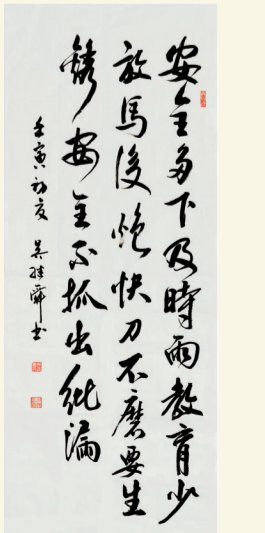 安全多下及時雨教育少
放馬後炮快刀不磨要生
銹安全不抓出紕漏
壬寅初夏 吴 舜书